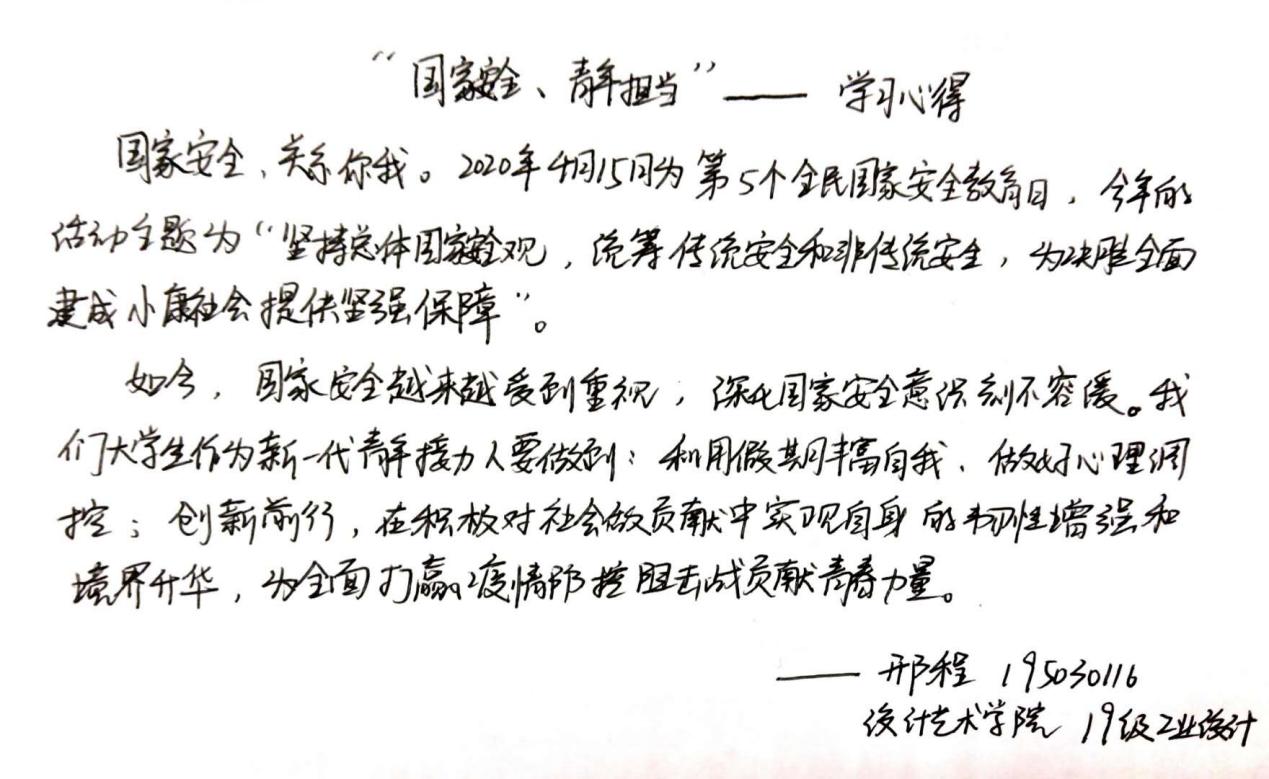 “国家安全、青年担当”—— 学习心得
国家安全、关系你我。2020年4月15日为第5个全民国家安全教育日，今年的
活动主题为“坚持总体国家安全观，统筹传统安全和非传统安全，为决胜全面
建成小康社会提供坚强保障”。
如今，国家安全越来越受到重视，深化国家安全意识刻不容缓。我
们大学生作为新一代青年接力人要做到：利用假期丰富自我、做好心理调
控；创新前行，在积极对社会做贡献中实现自身的韧性增强和
境界升华，为全面打赢疫情防控阻击战贡献青春力量。
—— 邢程 195030116
设计艺术学院 19级工业设计